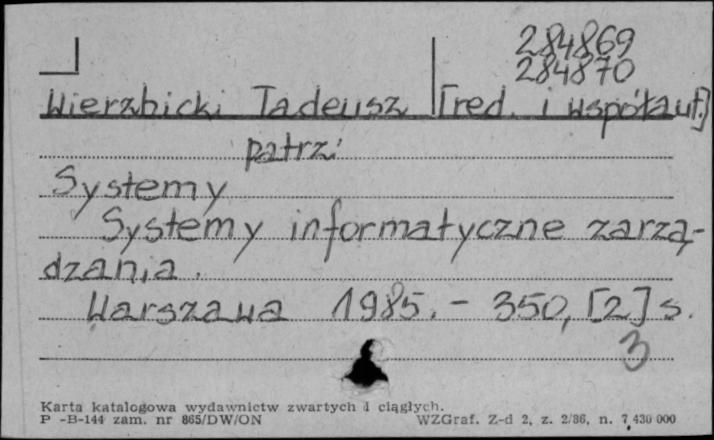 284869
284870
Wierzbicki Tadeusz [red. i współaut.]
patrz:
Systemy
Systemy informatyczne zarzą-
dzania.
Warszawa 1985. - 350, [2] s.
3
Karta katalogowa wydawnictw zwartych i ciągłych.
P -B-144 zam. nr 865/DW/ON WZGraf. Z-d 2, z. 2/86, n. 7 430 000